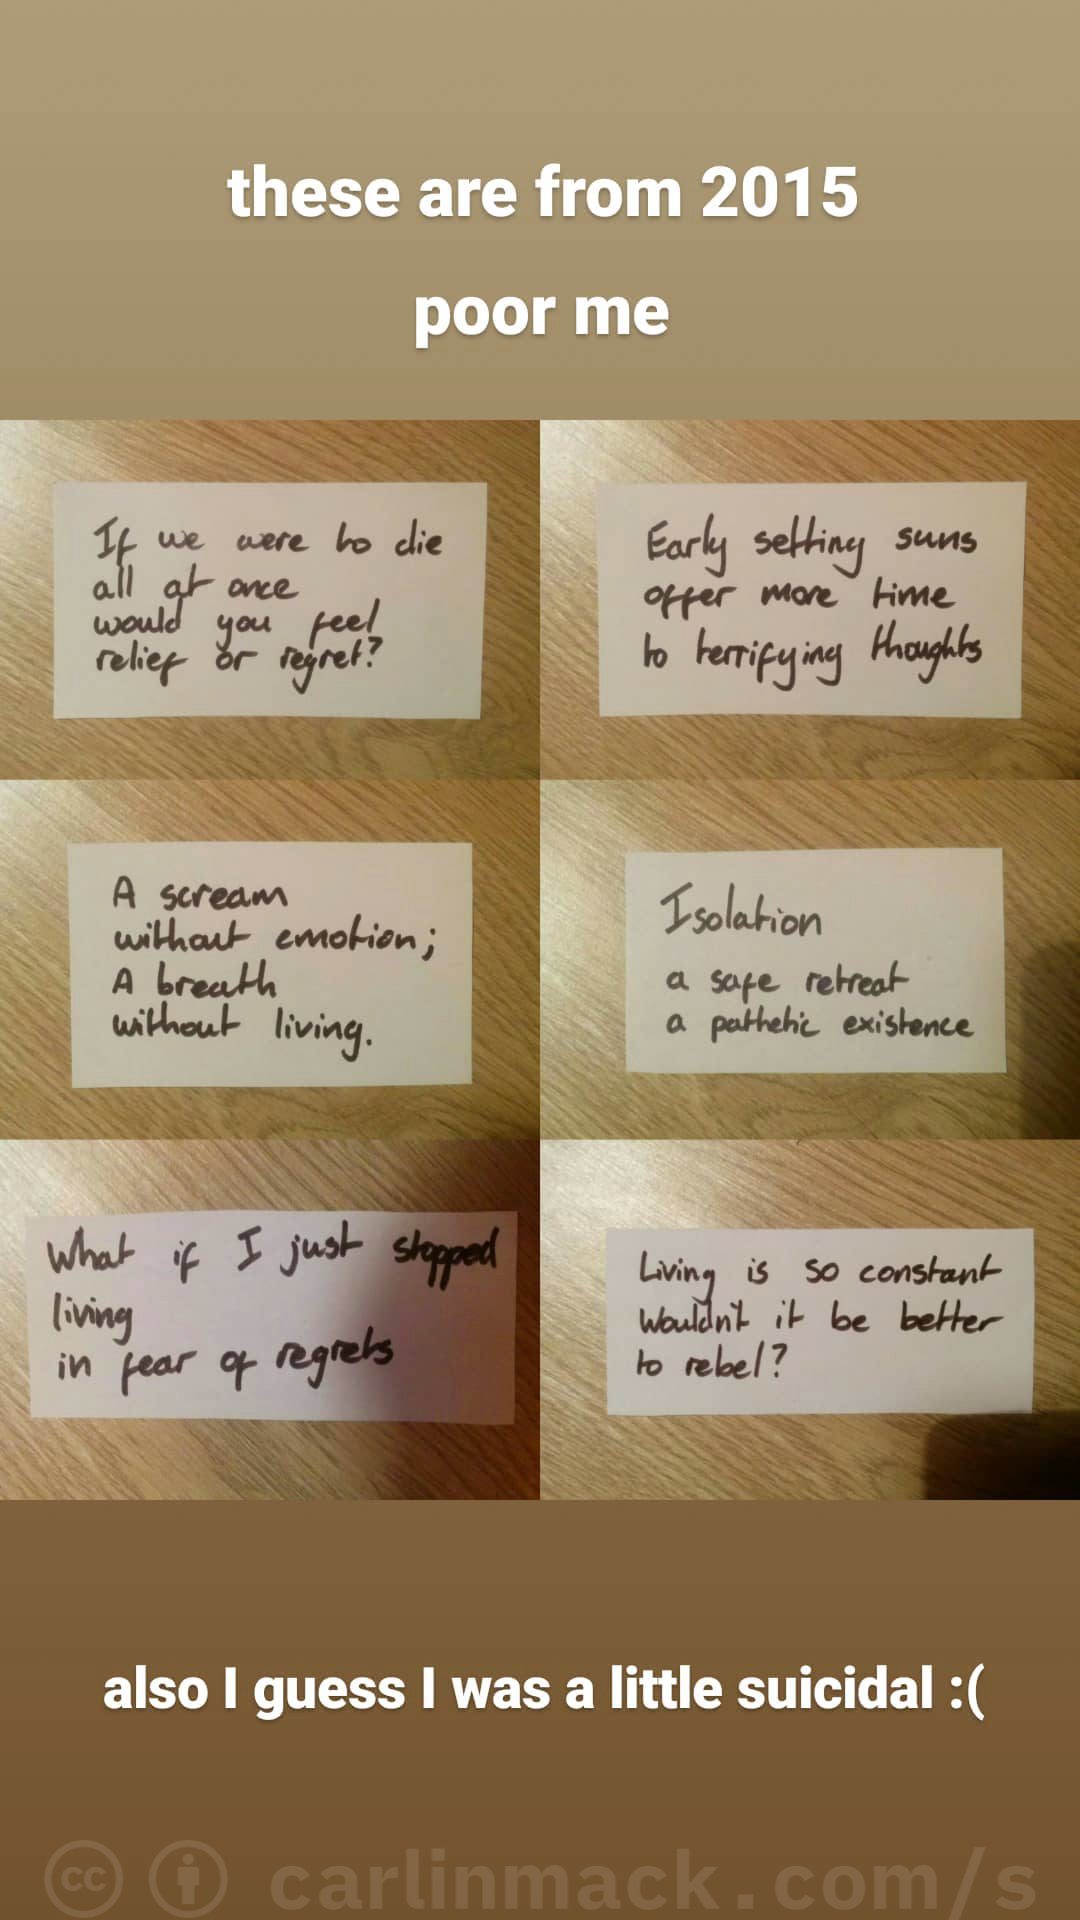 these are from 2015
poor me
If we were to die
all at once
would you feel
relief or regret?
Early setting suns
offer more time
to terrifying thoughts
A scream
without emotion;
A breath
without living.
Isolation
a safe retreat
a pathetic existence
What if I just stopped
living
in fear of regrets
Living is so constant
Wouldn't it be better
to rebel?
also I guess I was a little suicidal :(
cc carlinmack.com/s